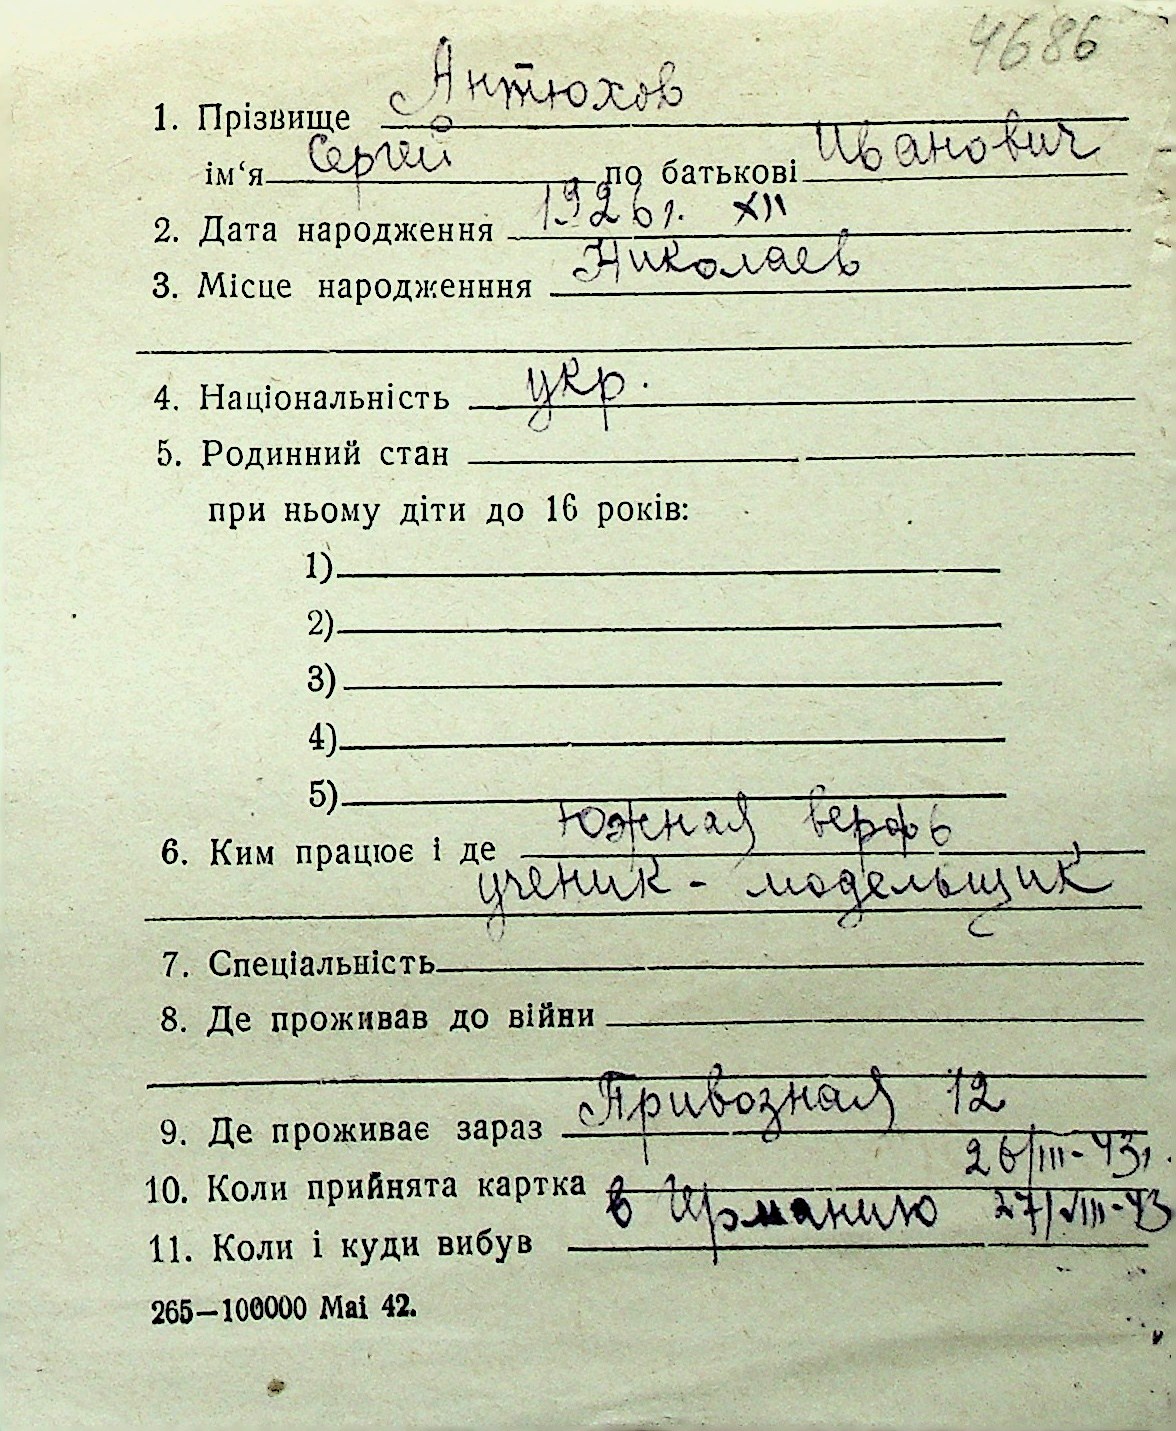 4686
1. Прізвище Антюхов
ім‘я Сергей по батькові Иванович
2. Дата народження 1926 г. XII
3. Місце народженння Николаев
4. Національність укр.
5. Родинний стан
при ньому діти до 16 років:
1)
2)
3)
4)
5)
6. Ким працює і де Южная верфь
ученик - модельщик
7. Спеціальність
8. Де проживав до війни
9. Де проживає зараз Привозная 12
10. Коли прийнята картка 26/III-43г.
11. Коли і куди вибув в Германию 27/VIII-43
265—100000 Mai 42.